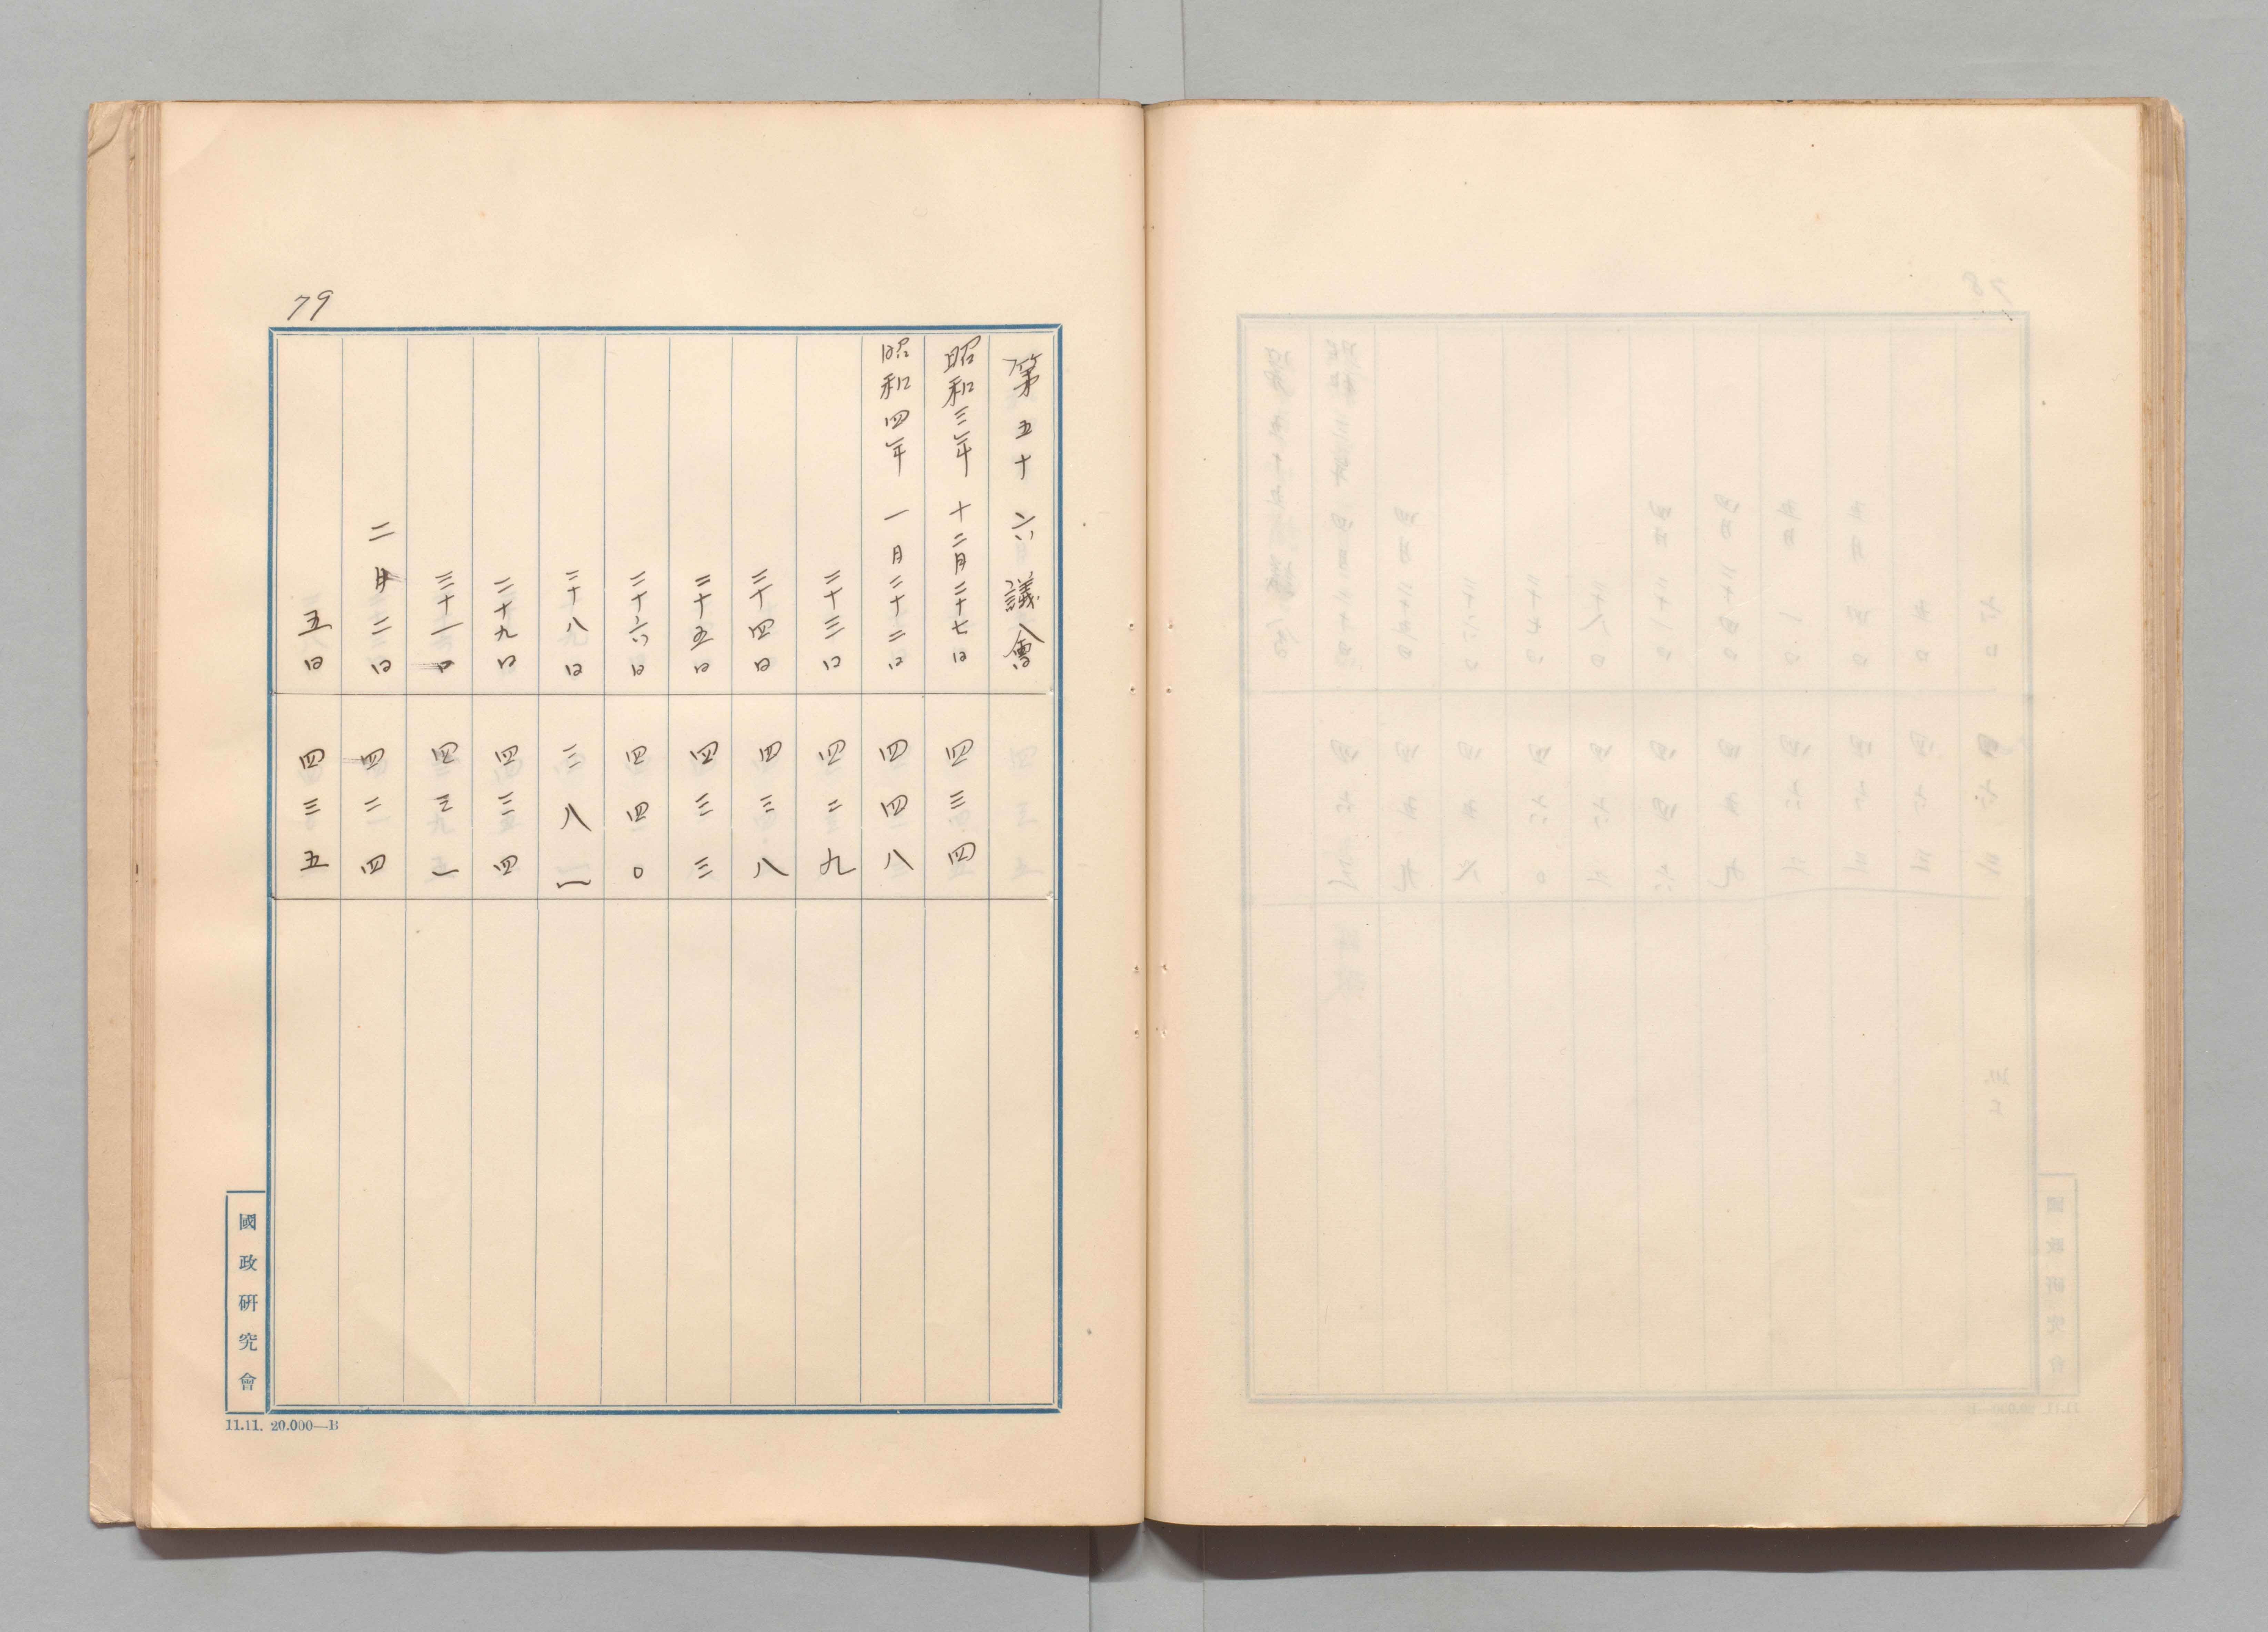 79
第五十六議會
昭和三年 十二月二十七日 四三四
昭和四年 一月二十二日 四四八
二十三日 四二九
二十四日 四三八
二十五日 四三三
二十六日 四四〇
二十八日 三八一
二十九日 四三四
三十一日 四三一
二月二日 四二四
五日 四三五
國政研究會
11.11. 20.000—B